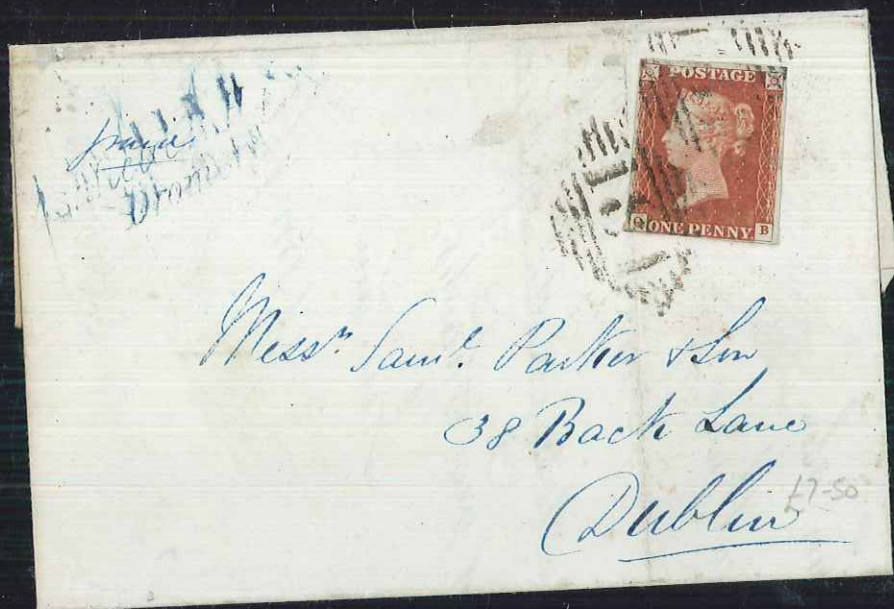 POSTAGE
Q B
ONE PENNY
Messrs. Saml. Parker & Son
38 Back Lane
Dublin
£7-50